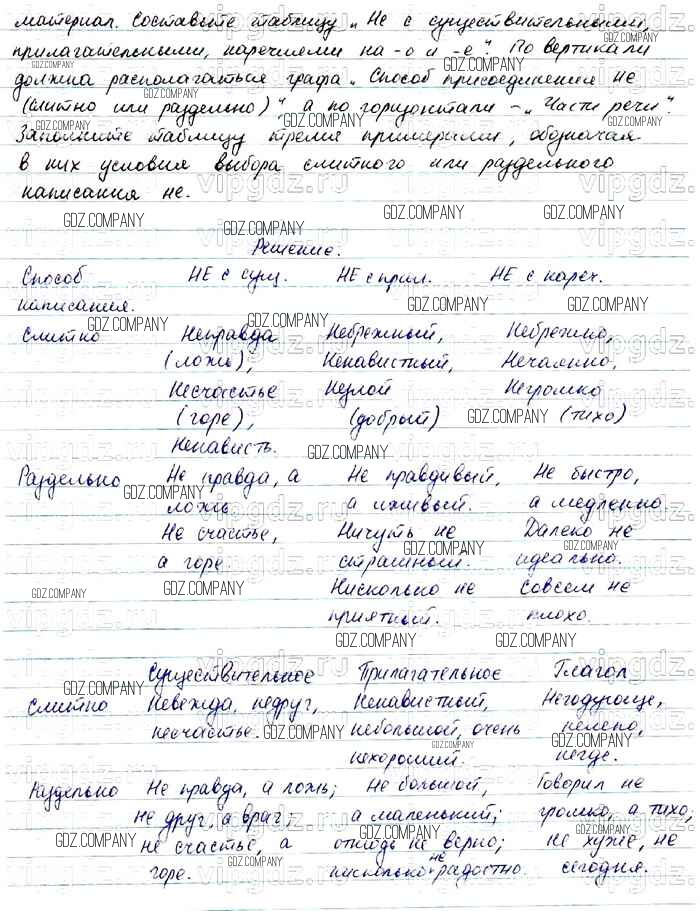 материал. Составьте таблицу „Не с существительными,
прилагательными, наречиями на -о и -е". По вертикали
должна располагаться графа „Способ присоединения не
(слитно или раздельно)", а по горизонтали – „Части речи".
Заполните таблицу тремя примерами, обозначая
в них условия выбора слитного или раздельного
написания не.
Решение.
Способ написания. НЕ с сущ. НЕ с прил. НЕ с нареч.
Слитно Неправда Небрежный, Небрежно,
(ложь), Ненавистный, Нечаянно,
Несчастье Незлой Негромко
(горе), (добрый) (тихо)
Ненависть.
Раздельно Не правда, а Не правдивый, Не быстро,
ложь. а лживый. а медленно
Не счастье, Ничуть не Далеко не
а горе страшный. идеально.
Нисколько не совсем не
приятный. плохо.
Существительное Прилагательное Глагол
Слитно Невежда, недруг, Ненавистный, Негодующе,
несчастье. небольшой, очень нелепо,
нехороший. негде.
Раздельно Не правда, а ложь; Не большой, Говорил не
не друг, а враг; а маленький; громко, а тихо;
не счастье, а отнюдь не верно; не хуже, не
горе. нисколько не радостно. сегодня.
GDZ.COMPANY
vipgdz.ru